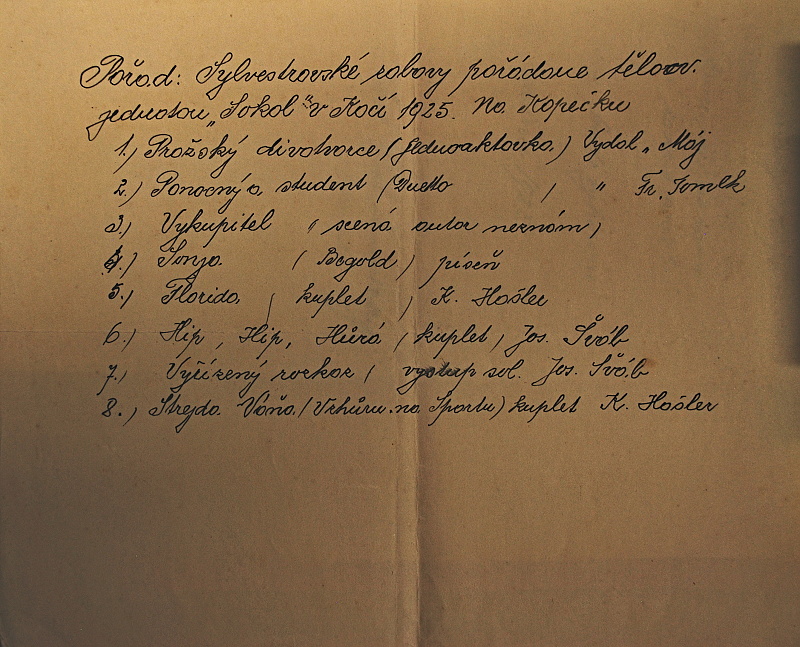 Pořad: Sylvestrovské zábavy pořádané tělocv.
jednotou „Sokol" v Kočí 1925. Na Kopečku
1.) Pražský divotvorce (Jednoaktovka) Vydal „ Máj
2.) Ponocný a student (Duetto ) " Fr.
3.) Vykupitel ( scená autor neznám)
4.) Sonja ( Bigold ) píseň
5.) Florida ( kuplet ) K. Hašler
6.) Hip, Hip, Hurá ( kuplet ) Jos. Šváb
7.) Vyřízený vzkaz ( výstup sol. Jos. Šváb
8.) Strejda Váňa (Vzhůru na Sportu) kuplet K. Hašler